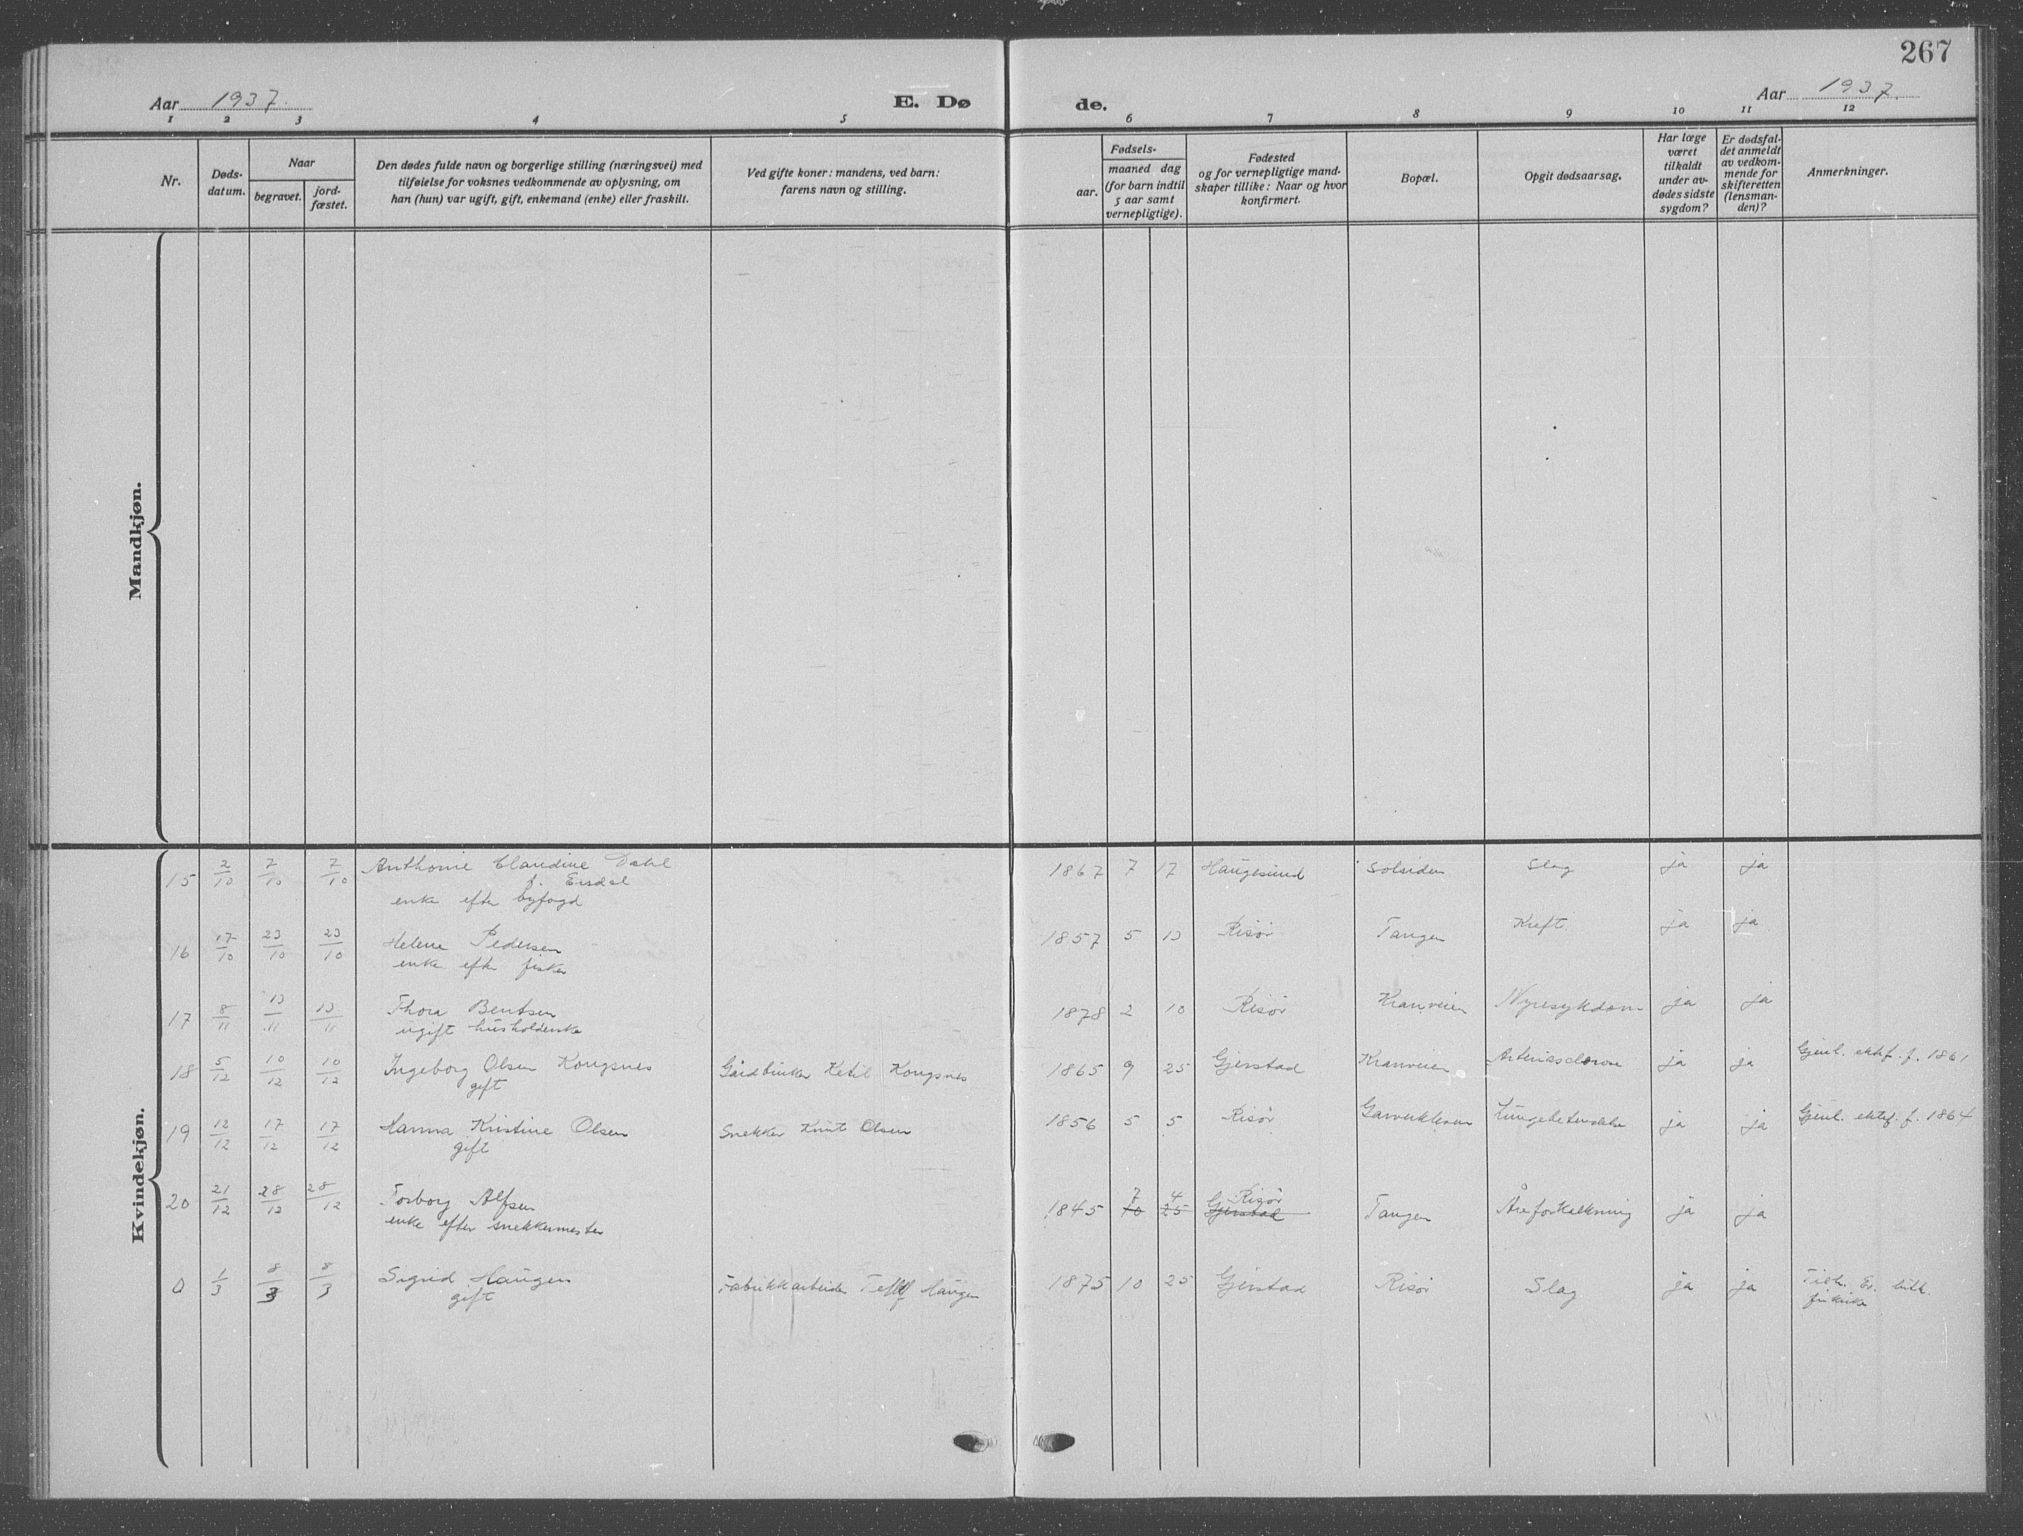 267
Aar 1937.
E. Dø
de.
Aar 1937.
1 2 3 4 5 6 7 8 9 10 11 12
Nr.
Døds-
datum.
Naar
begravet.
jord-
fæstet.
Den dødes fulde navn og borgerlige stilling (næringsvei) med
tilføielse for voksnes vedkommende av oplysning, om
han (hun) var ugift, gift, enkemand (enke) eller fraskilt.
Ved gifte koner: mandens, ved barn:
farens navn og stilling.
Fødsels-
aar.
maaned dag
(for barn indtil
5 aar samt
vernepligtige).
Fødested
og for vernepligtige mand-
skaper tillike: Naar og hvor
konfirmert.
Bopæl.
Opgit dødsaarsag.
Har læge
været
tilkaldt
under av-
dødes sidste
sygdom?
Er dødsfal-
det anmeldt
av vedkom-
mende for
skifteretten
(lensman-
den)?
Anmerkninger.
Mandkjøn.
Kvindekjøn.
15 2/10 7/10 7/10 Anthonie Claudine Dahl 1867 7 17 Haugesund Solsiden Slag ja ja
f. Eisdal
enke efter byfogd
16 17/10 23/10 23/10 Helene Pedersen 1857 5 13 Risør Tangen Kreft. ja ja
enke efter fisker
17 8/11 13/11 13/11 Thora Bentsen 1878 2 10 Risør Kranveien Nyresykdom ja ja
ugift husholderske
18 5/12 10/12 10/12 Ingeborg Olsen Kongsnes Gårdbruker Ketil Kongsnes 1865 9 25 Gjerstad Kranveien Arteriosclerose ja ja Gjenl. ektef. f. 1861
gift
19 12/12 17/12 17/12 Hanna Kristine Olsen Snekker Knut Olsen 1856 5 5 Risør Lungebetendelse ja ja Gjenl. ektef. f. 1864
gift
20 21/12 28/12 28/12 Torborg Alfsen 1845 7 10 4 25 Risør Gjerstad Tangen Åreforkalkning ja ja
enke efter snekkermester
0 1/3 8/3 8/3 Sigrid Haugen Fabrikkarbeider Tellef Haugen 1875 10 25 Gjerstad Risør Slag ja ja Tilh. Ev. luth.
gift frikirke